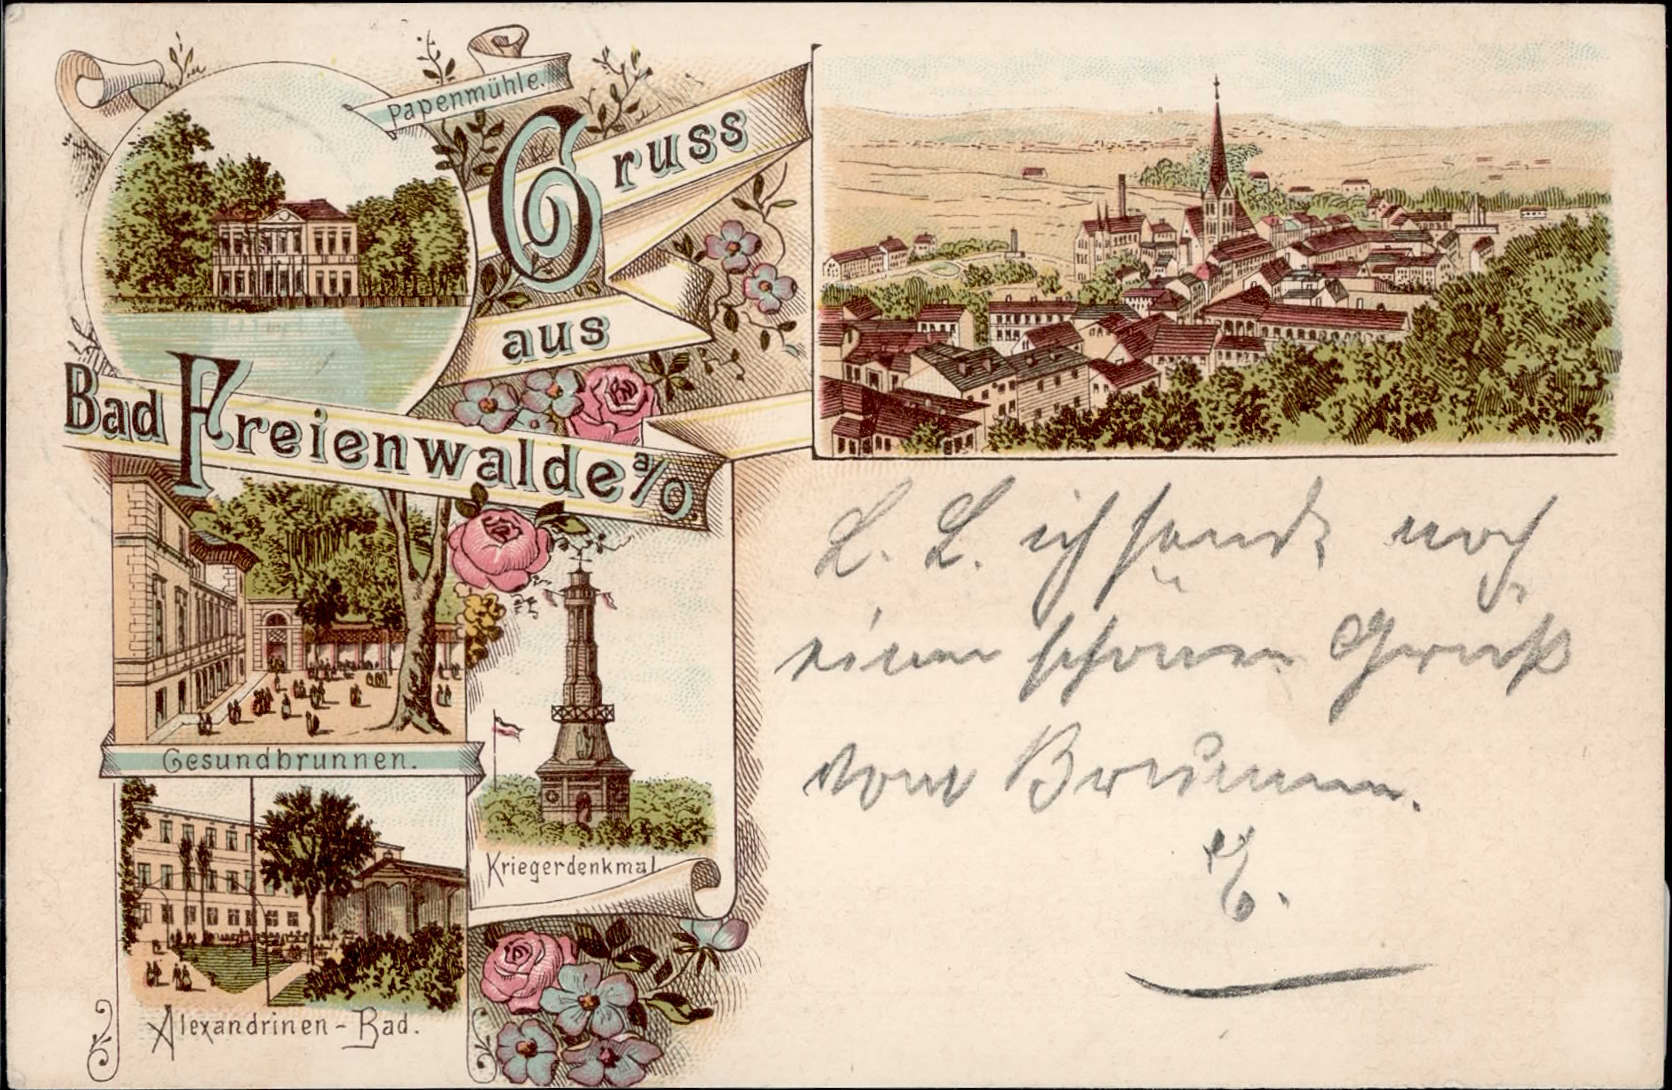 Papenmühle.
Gruss
aus
Bad Freienwalde a/O
Gesundbrunnen.
Kriegerdenkmal
Alexandrinen-Bad.
L. L. ich sende noch
einen schönen Gruß
vom Brunnen.